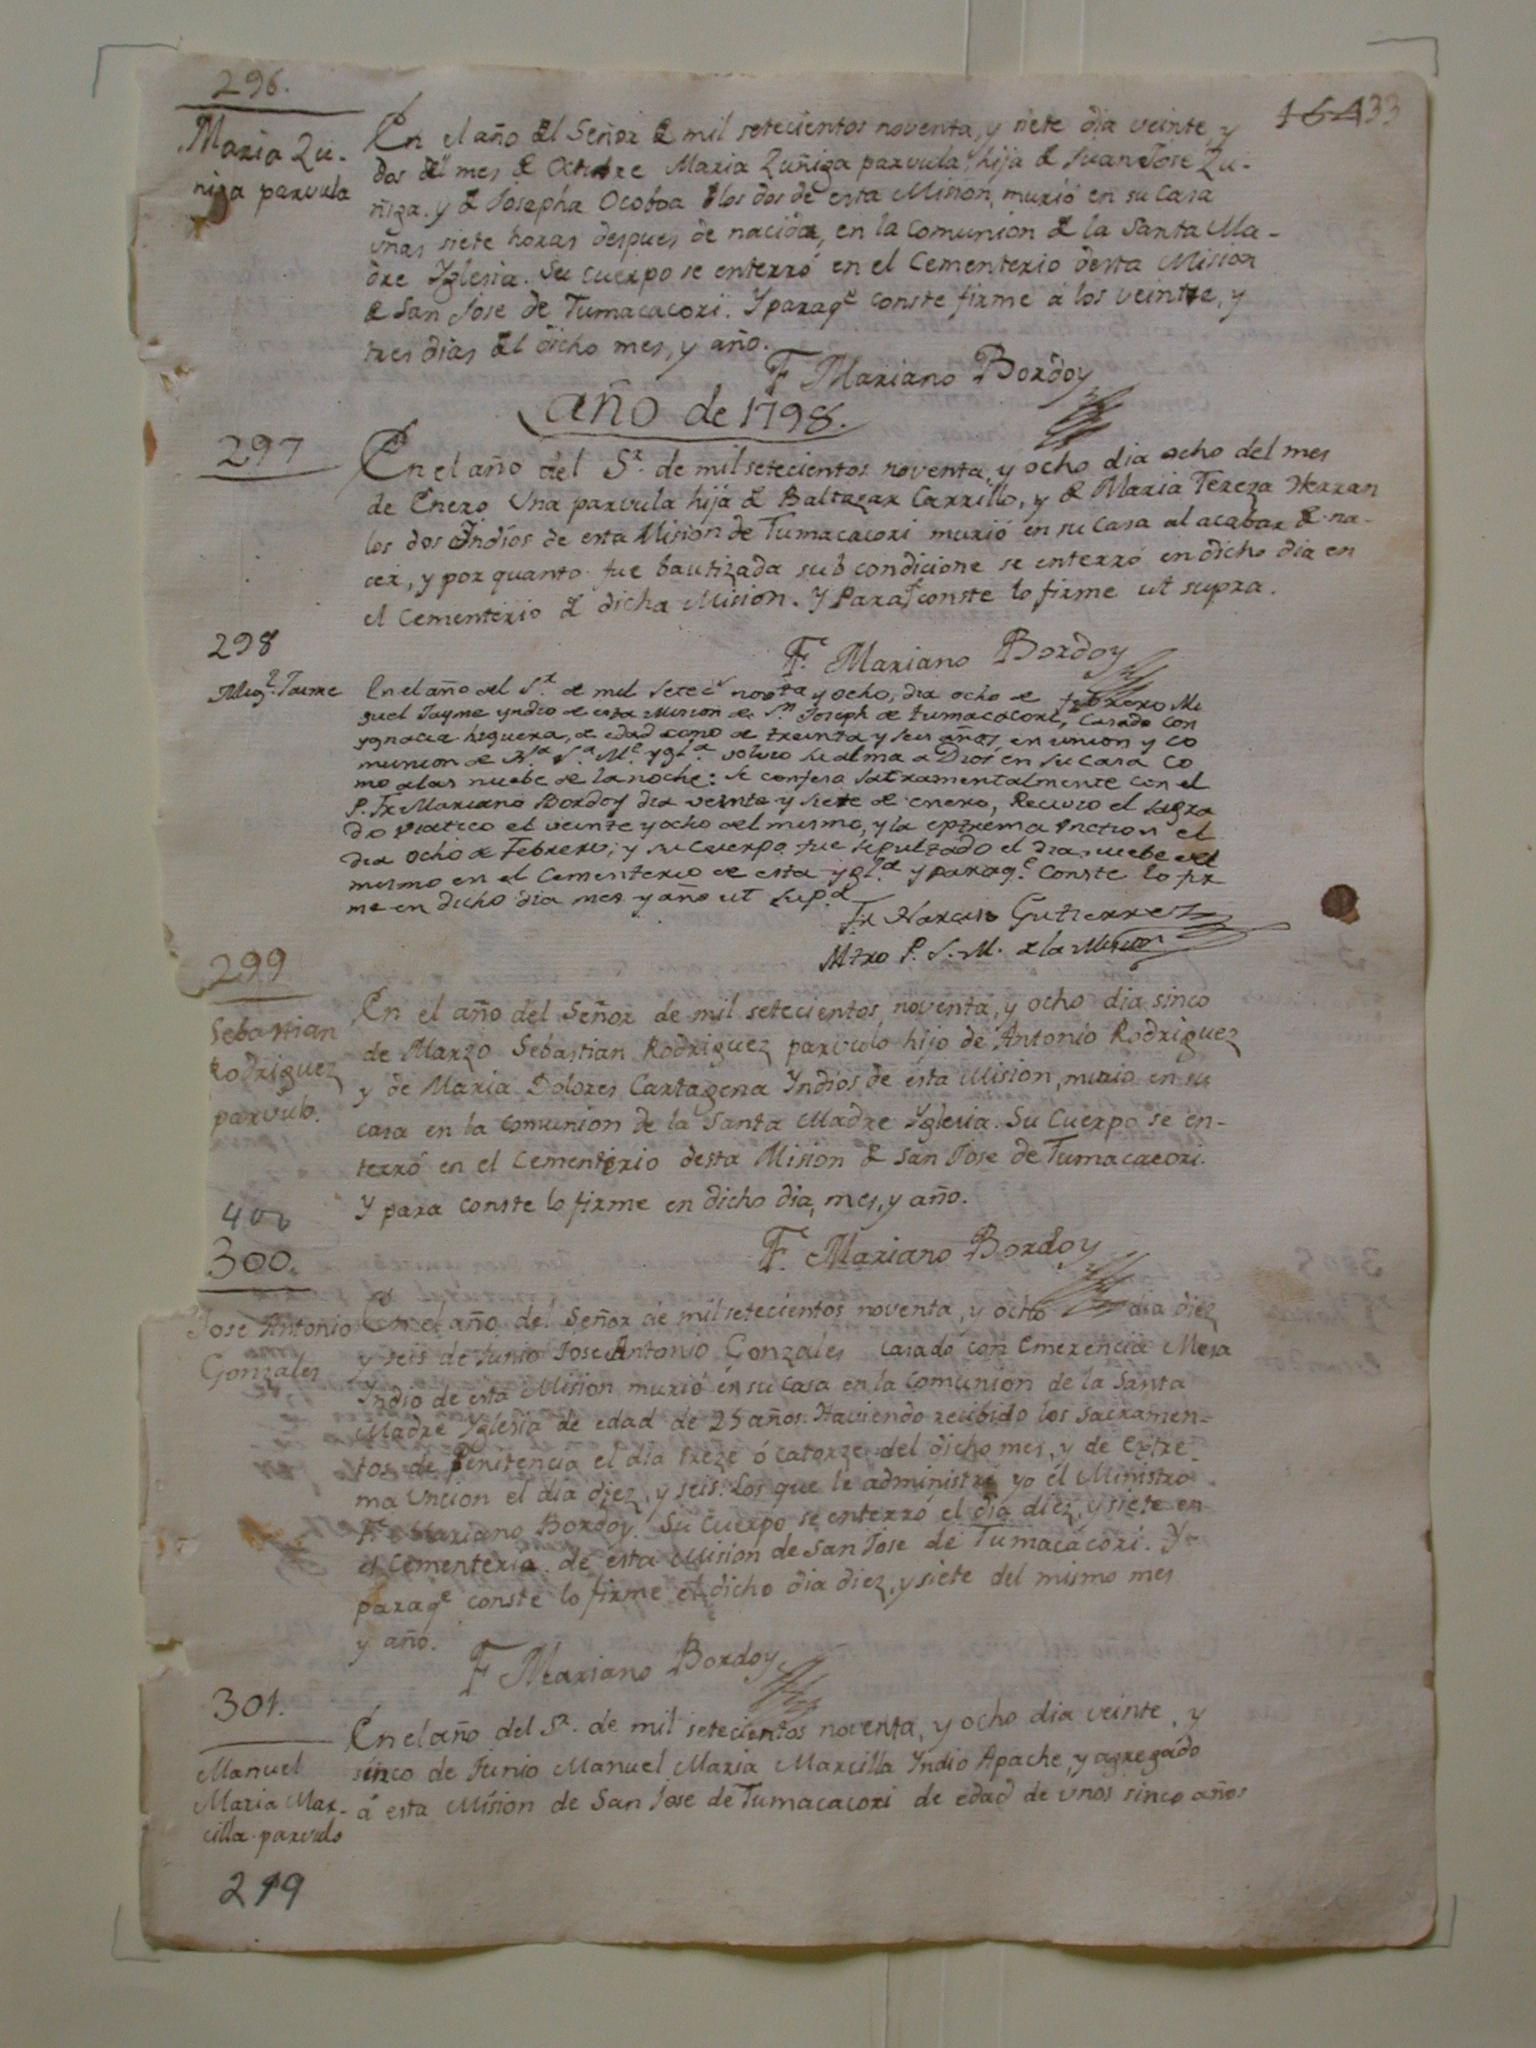 296.
164 33
Maria Zu-
ñiga parvula
En el año del Señor de mil setecientos noventa, y siete dia veinte, y
dos del mes de Octubre Maria Zuñiga parvula, hija de Juan Jose Zu-
ñiga. y de Josepha Ocoboa los dos de esta Mision, murió en su casa
unas siete horas despues de nacida, en la Comunion de la Santa Ma-
dre Yglesia. Su cuerpo se enterró en el Cementerio desta Mision
de San Jose de Tumacacori. Y paraqe conste firme á los veinte, y
tres dias del dicho mes, y año.
F Mariano Bordoy
año de 1798.
297
En el año del Sr. de mil setecientos noventa, y ocho dia ocho del mes
de Enero Una parvula hija de Baltazar Carrillo, y de Maria Tereza Herran
los dos Indios de esta Mision de Tumacacori murió en su casa al acabar de na-
cer, y por quanto fue bautizada sub condicione se enterró en dicho dia en
el Cementerio de dicha Mision. Y Paraqe conste lo firme ut supra.
F. Mariano Bordoy
298
Migl. Jaime
En el año del Sr. de mil setecs novta y ocho, dia ocho de febrero Mi
guel Jayme yndio de esta Mision de Sn Joseph de tumacacori, casado con
ygnacia higuera, de edad como de treinta y seis años, en union y co
munion de Na. Sa. Me. ygla. volvio su alma a Dios en su casa co
mo a las nuebe de la noche: se confeso sacramentalmente con el
P. Fr. Mariano Bordoy dia veinte y siete de enero, Recivio el sagra
do viatico el veinte y ocho del mismo, y la extrema Unction el
dia ocho de Febrero; y su cuerpo fue sepultado el dia nuebe del
mismo en el Cementerio de esta ygla. y paraqe. conste lo fir
me en dicho dia mes y año ut Supa
Fr Narciso Gutierrez
Mtro P. S. M. de la Mision
299
Sebastian
Rodriguez
parvulo.
En el año del Señor de mil setecientos, noventa, y ocho dia sinco
de Marzo Sebastian Rodriguez parvulo hijo de Antonio Rodriguez
y de Maria Dolores Cartagena Yndios de esta Mision, murio en su
casa en la comunion de la Santa Madre Yglesia. Su Cuerpo se en-
terró en el Cementerio desta Mision de San Jose de Tumacacori.
Y para conste lo firme en dicho dia, mes, y año.
F. Mariano Bordoy
400
300.
Jose Antonio
Gonzales
En el año del Señor de mil setecientos noventa, y ocho dia diez
y seis de Junio Jose Antonio Gonzales casado con Emerencia Mesa
Indio de esta Mision murió en su casa en la comunion de la Santa
Madre Yglesia de edad de 25 años. Haviendo recibido los Sacramen-
tos de Penitencia el dia treze ó catorze del dicho mes, y de Extre-
ma Uncion el dia diez, y seis. Los que le administré yo el Ministro
Fr. Mariano Bordoy. Su Cuerpo se enterró el dia diez, y siete en
el Cementerio de esta Mision de San Jose de Tumacácori. Y
paraqe conste lo firme el dicho dia diez, y siete del mismo mes
y año.
F Mariano Bordoy
301.
Manuel
Maria Mar-
cilla parvulo
En el año del Sr. de mil setecientos noventa, y ocho dia veinte, y
sinco de Junio Manuel Maria Marcilla Yndio Apache, y agregado
á esta Mision de San Jose de Tumacacori de edad de unos sinco años
219